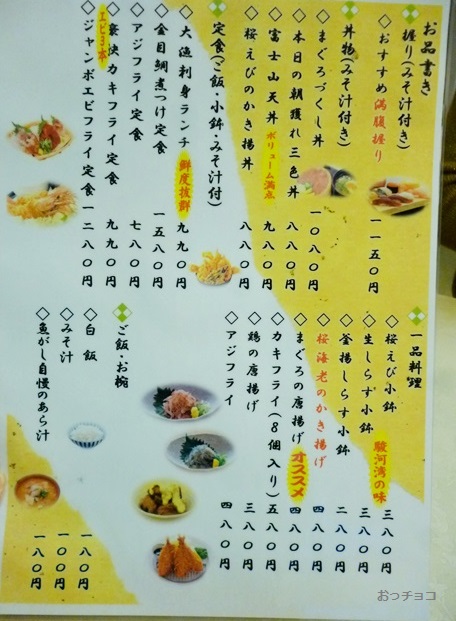 お品書き
握り(みそ汁付き)
◇おすすめ満腹握り 一一五〇円
丼物(みそ汁付き)
◇まぐろづくし丼 一〇八〇円
◇本日の朝獲れ三色丼 八八〇円
◇富士山天丼 ボリューム満点 九八〇円
◇桜えびのかき揚丼 八八〇円
定食(ご飯・小鉢・みそ汁付)
◇大漁刺身ランチ 鮮度抜群 九九〇円
◇金目鯛煮つけ定食 一五八〇円
◇アジフライ定食 七八〇円
◇豪快カキフライ定食 九九〇円
◇ジャンボエビフライ定食 エビ3本 一二八〇円
一品料理
◇桜えび小鉢 三八〇円
◇生しらす小鉢 駿河湾の味 三八〇円
◇釜揚しらす小鉢 二八〇円
◇桜海老のかき揚げ 四八〇円
◇まぐろの唐揚げ オススメ 四八〇円
◇カキフライ(8個入り) 五八〇円
◇鶏の唐揚げ 三八〇円
◇アジフライ 四八〇円
ご飯・お椀
◇白飯 一八〇円
◇みそ汁 一〇〇円
◇魚がし自慢のあら汁 一八〇円
おっチョコ